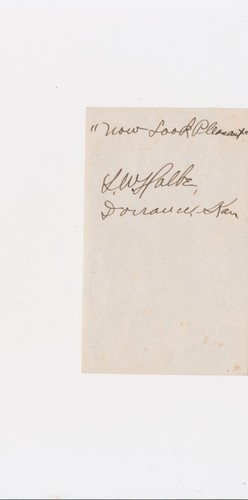 "Now Look Pleasant"
L.W. Halbe,
Dorrance, Kan